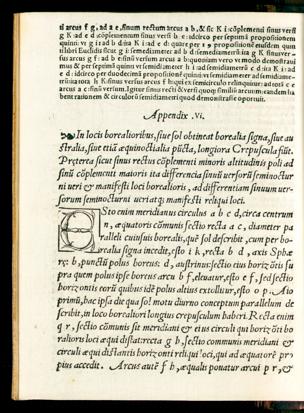 si arcus f g, ad a e, sinum rectum arcus a b, & sic K i cōplementi sinus versi
g K ad e d cōplementum sinus versi b e: idcirco per septimā propositionem
quinti: vt g i ad b d sina K i ad e d: quare per 19 propositionē eiusdem quin
ti libri Euclidis sicut g i semediameter ad b d semediametrū
sus arcus g f: ad b e sinū versum arcus a b
mus & per septimā quinti vt semidiameter b i ad semidiametrū e d
e d: idcirco per duodecimā propositionē quinti vt semidiameter ad semidiame
trū
arcus a e sinū versum. Igitur sinus recti & versi quoq; similiū arcuum eandem ha
bent rationem & circulorū semidiametri quod demonstrasse oportuit.
Appendix .vi.
In locis borealioribus, siue sol obtineat borealia signa, siue au
stralia, siue etiā æquinoctialia pūcta, longiora Crepuscula fiūt.
Præterea sicut sinus rectus cōplementi minoris altitudinis poli ad
sinū cōplementi maioris ita differencia sinuū versorū seminoctur
ni veri & manifesti loci borealioris, ad differentiam sinuum ver-
sorum seminocturni veri atq; manifesti reliqui loci.
ESto enim meridianus circulus a b c d, circa centrum
n, æquatoris cōmunis sectio recta a c, diameter pa
ralleli cuiusuis borealis, quē sol describit, cum per bo-
realia signa incedit, esto i k, recta b d, axis Sphæ
rę: b, punctū polus boreus: d, austrinus: sectio eius horizōtis su
pra quem polus ipse boreus arcu b f, eleuatur, esto e f, sed sectio
horizontis eorū quibus idē polus altius extollitur, esto o p. Aio
primū, hac ipsa die qua sol motu diurno conceptum parallelum de
scribit, in loco borealiori longius crepusculum haberi. Recta enim
q r, sectio cōmunis sit meridiani & eius circuli qui horizōti bo
realioris loci æqui distat: recta g h, sectio communis meridiani &
circuli æqui distantis horizonti reliqui loci, qui ad æquatorē pro
pius accedit. Arcus autē f h, æqualis ponatur arcui p r, &